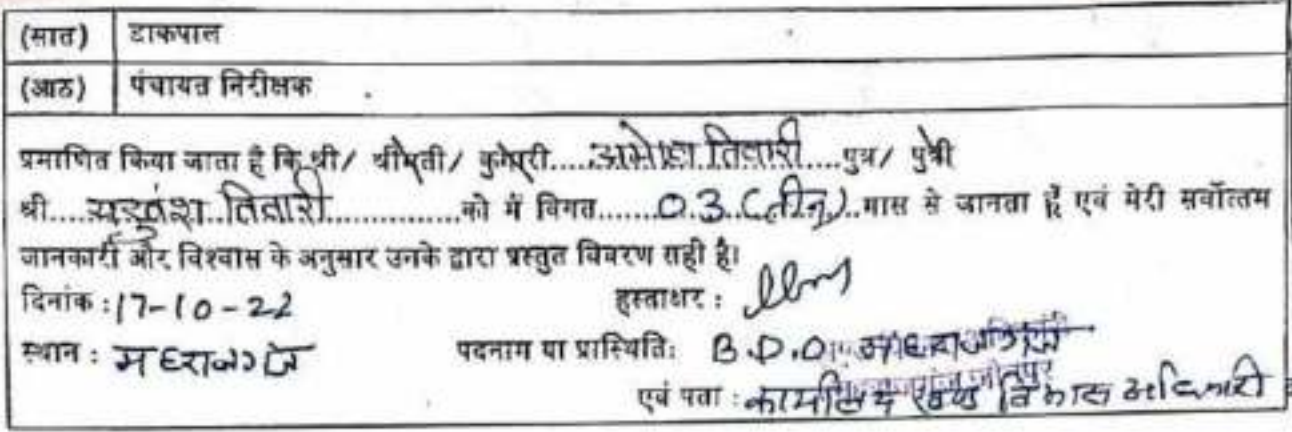 (सात) डाकपाल
(आठ) पंचायत निरीक्षक
प्रमाणित किया जाता है कि श्री/ श्रीमती/ कुमारी.... तिवारी....पुत्र/ पुत्री
श्री....यदुवंश..तिवारी..............को में विगत.......03.(तीन)..मास से जानता हूँ एवं मेरी सर्वोत्तम
जानकारी और विश्वास के अनुसार उनके द्वारा प्रस्तुत विवरण सही है।
दिनांक : 17-10-22 हस्ताक्षर :
स्थान : महाराजगंज पदनाम या प्रास्थिति: B.D.O.
एवं पता : कार्यालय खण्ड विकास अधिकारी